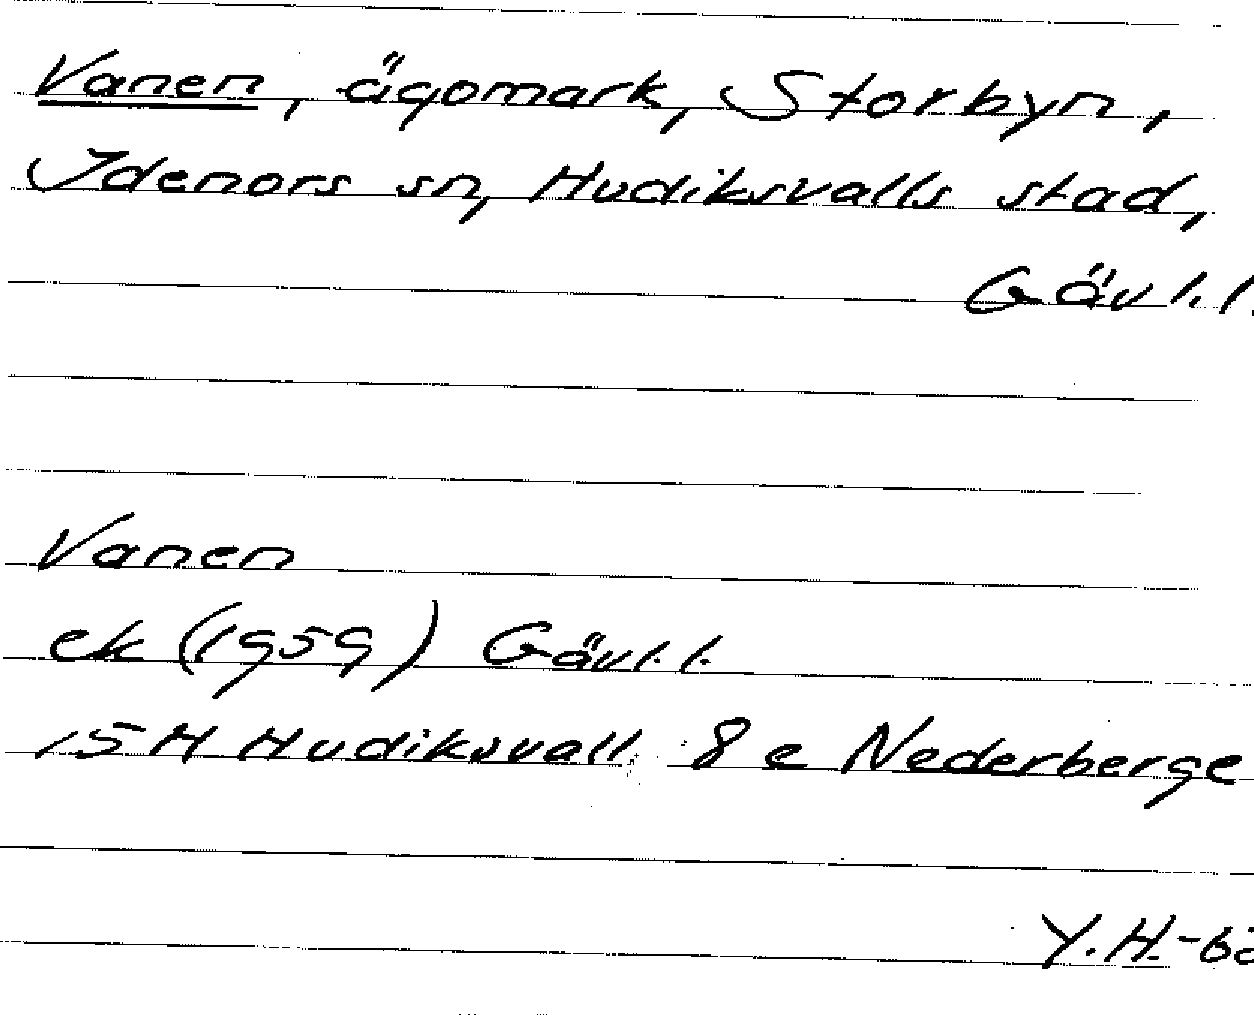 Vanen, ägomark, Storbyn,
Idenors sn, Hudiksvalls stad,
Gävl.l.
Vanen
ek (1959) Gävl.l.
15H Hudiksvall 8e Nederberge
Y.H.-62